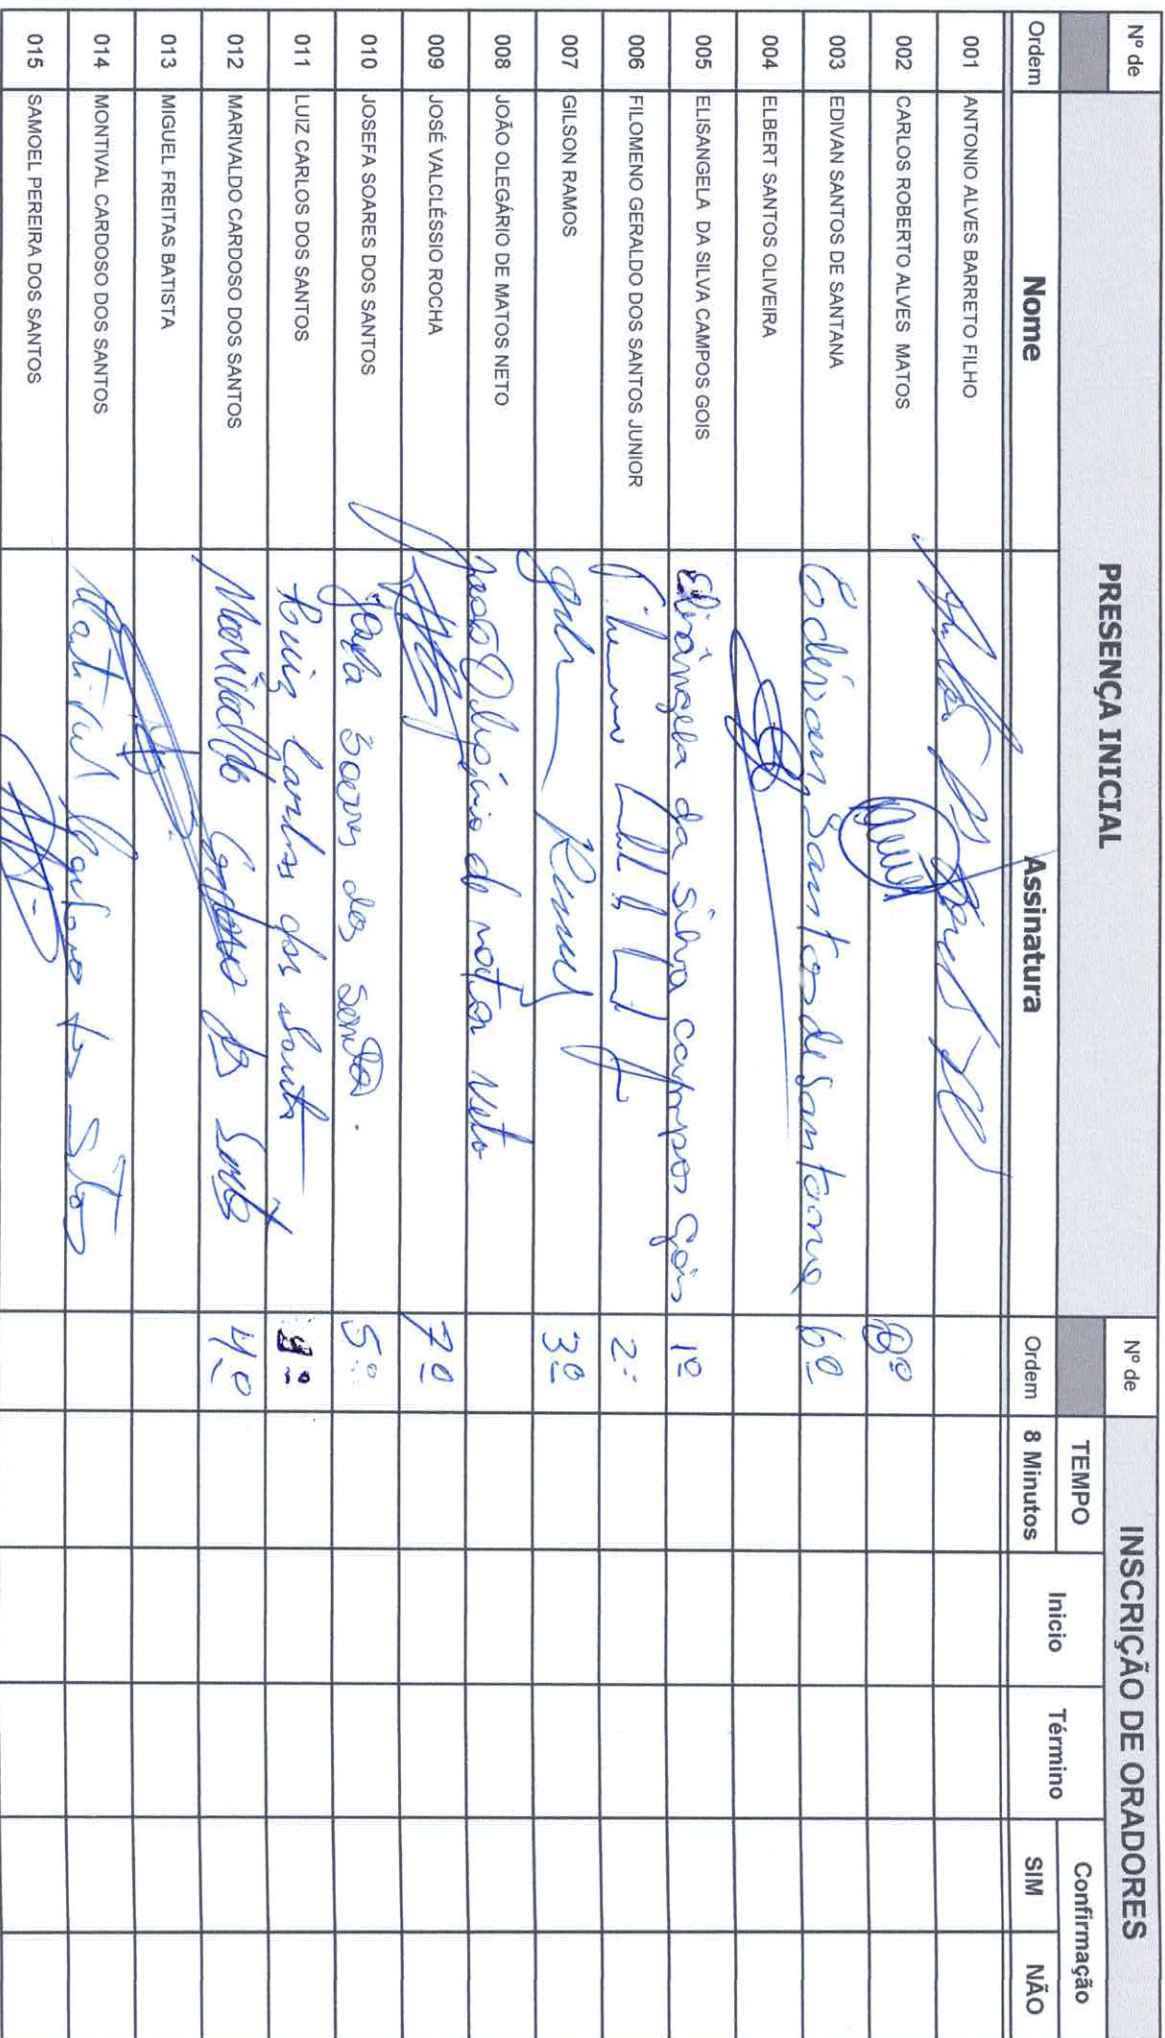 Nº de PRESENÇA INICIAL Nº de INSCRIÇÃO DE ORADORES
TEMPO Inicio Término Confirmação
Ordem Nome Assinatura Ordem 8 Minutos SIM NÃO
001 ANTONIO ALVES BARRETO FILHO
002 CARLOS ROBERTO ALVES MATOS 8º
003 EDIVAN SANTOS DE SANTANA Edivan Santos de Santana 6º
004 ELBERT SANTOS OLIVEIRA
005 ELISANGELA DA SILVA CAMPOS GOIS Elisângela da Silva Campos Góis 1º
006 FILOMENO GERALDO DOS SANTOS JUNIOR 2º
007 GILSON RAMOS 3º
008 JOÃO OLEGÁRIO DE MATOS NETO João Olegário de Matos Neto
009 JOSÉ VALCLÉSSIO ROCHA 7º
010 JOSEFA SOARES DOS SANTOS Josefa Soares dos Santos. 5º
011 LUIZ CARLOS DOS SANTOS Luiz Carlos dos Santos
012 MARIVALDO CARDOSO DOS SANTOS Marivaldo Cardoso dos Santos 4º
013 MIGUEL FREITAS BATISTA
014 MONTIVAL CARDOSO DOS SANTOS
015 SAMOEL PEREIRA DOS SANTOS